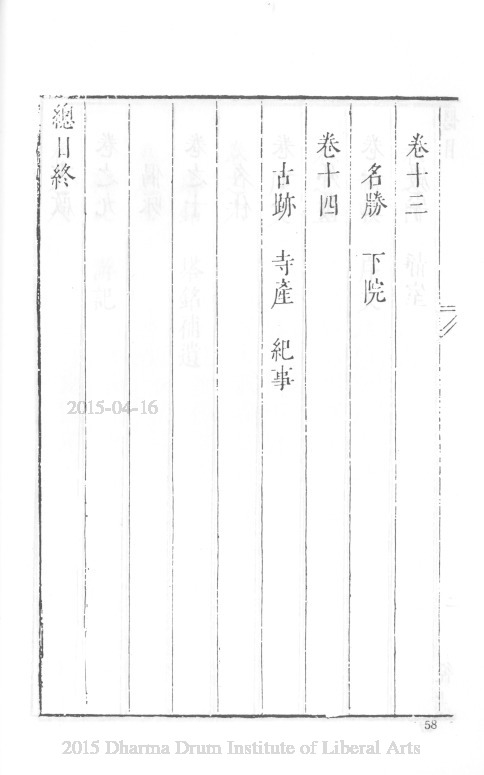 卷十三
名勝 下院
卷十四
古跡 寺產 紀事
總目終
2015-04-16
58
2015 Dharma Drum Institute of Liberal Arts